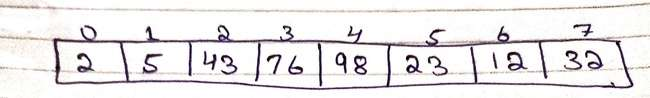 0 1 2 3 4 5 6 7
2 5 43 76 98 23 12 32